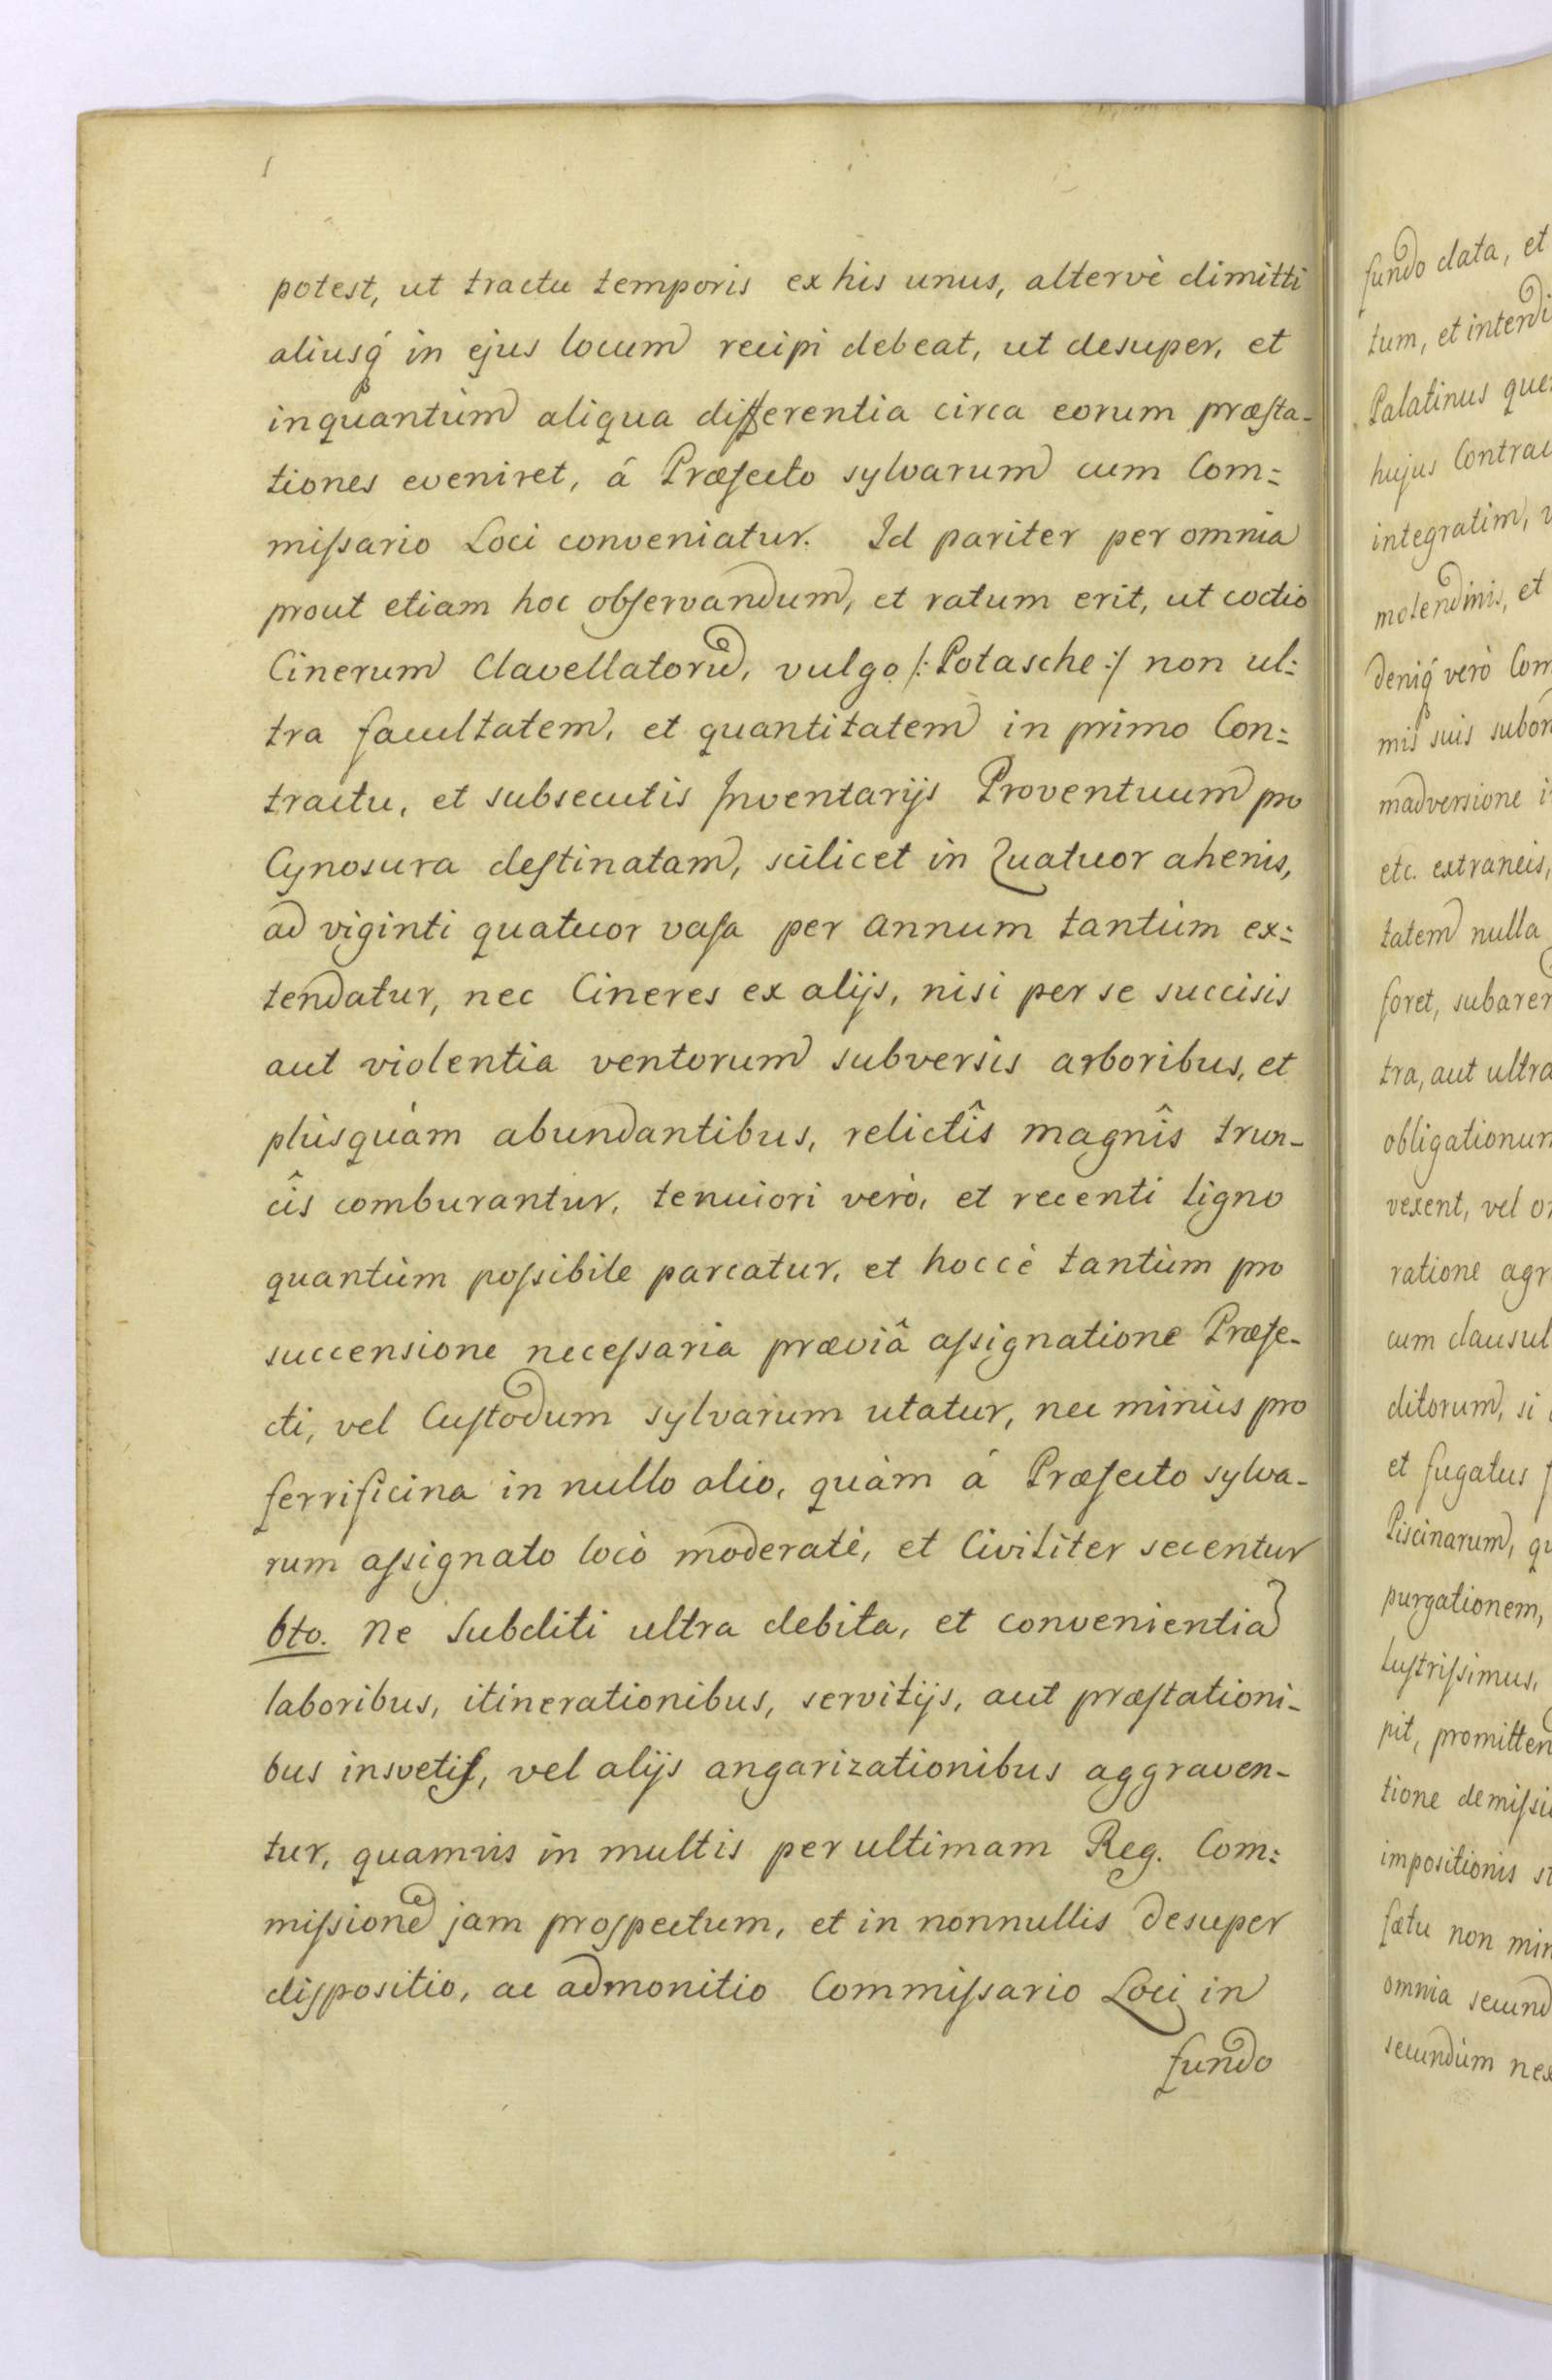 potest, ut tractu temporis ex his unus, altervè dimitti
aliusq́ in ejus locum recipi debeat, ut desuper, et
inquantùm aliqua differentia circa eorum præsta-
tiones eveniret, á Præfecto sylvarum cum Com:
missario Loci conveniatur. Id pariter per omnia
prout etiam hoc observandum, et ratum erit, ut coctio
Cinerum Clavellatorũ, vulgo /: Potasche :/ non ul:
tra facultatem, et quantitatem in primo Con:
tractu, et subsecutis Inventarijs Proventuum pro
Cynosura destinatam, scilicet in Quatuor ahenis,
ad viginti quatuor vasa per annum tantùm ex:
tendatur, nec Cineres ex alijs, nisi per se succisis
aut violentia ventorum subversis arboribus, et
plùsquàm abundantibus, relictîs magnîs trun-
cîs comburantur, tenuiori verò, et recenti ligno
quantùm possibile parcatur, et hoccè tantùm pro
succensione necessaria præviâ assignatione Præfe-
cti, vel Custodum sylvarum utatur, nec minùs pro
ferrificina in nullo alio, quàm á Præfecto sylva-
rum assignato locò moderatè, et Civiliter secentur
6to. Ne Subditi ultra debita, et convenientia
laboribus, itinerationibus, servitijs, aut præstationi-
bus insvetis, vel alijs angarizationibus aggraven-
tur, quamvis in multis per ultimam Reg. Com:
missionē jam prospectum, et in nonnullis desuper
dispositio, ac admonitio Commissario Loci in
fundo
fundo data, et
tum, et interdi
Palatinus que
hujus Contrac
integratim, v
molendinis, et
deniq́ verò Com
mis suis subor
madversione i
etc. extraneis,
tatem nulla
foret, subarer
tra, aut ultra
obligationum
vexent, vel o
ratione agr
cum clausul
ditorum, si
et fugatus
Piscinarum, qu
purgationem,
lustrissimus,
pit, promitten
tione demissi
impositionis st
fætu non min
omnia secund
secundùm nex